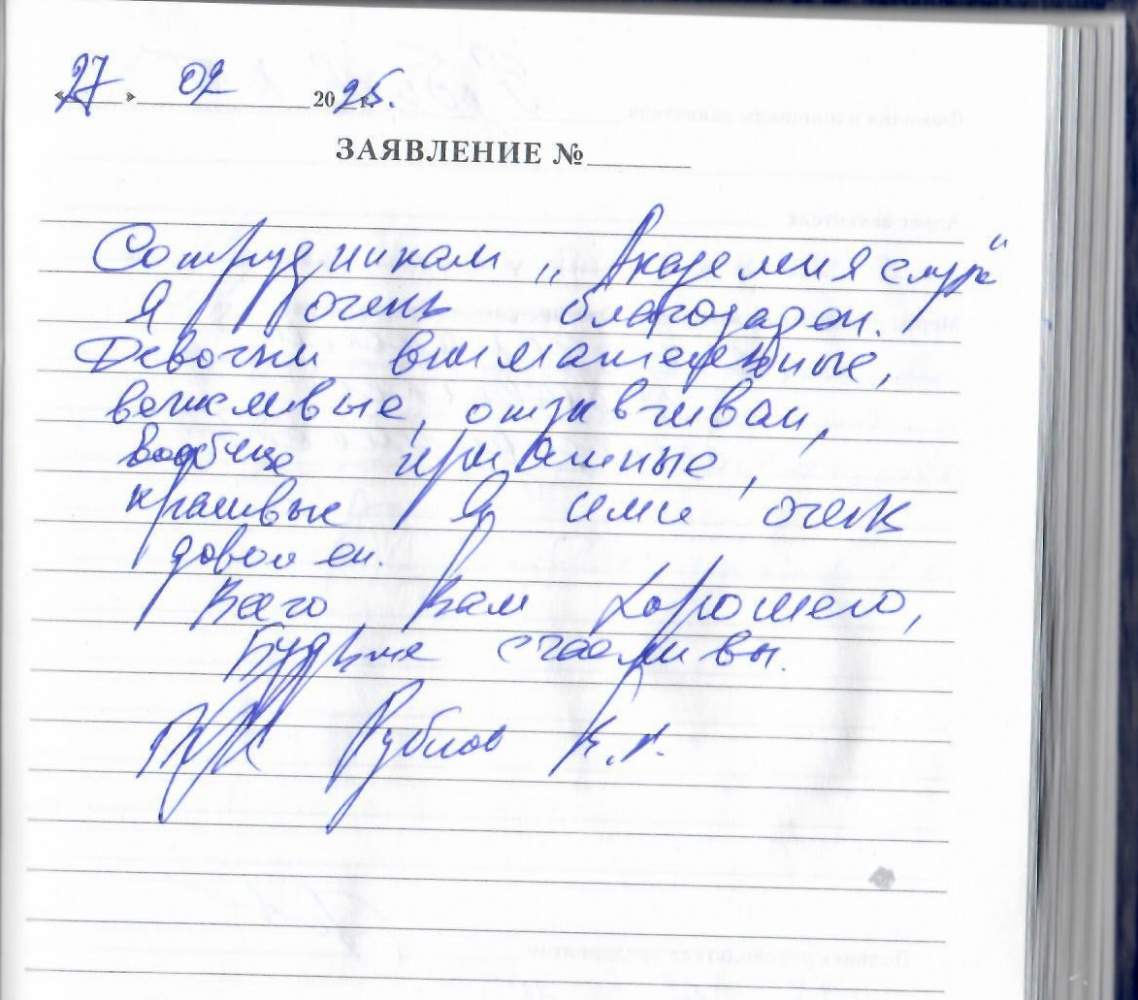 «27» 02 2025г.
ЗАЯВЛЕНИЕ №
Сотрудникам „Академия слуха“
Я очень благодарен.
Девочки внимательные,
вежливые, отзывчивы,
вообще приятные,
красивые Я ими очень
доволен.
Всего Вам хорошего,
Будьте счастливы.
Рублов К.